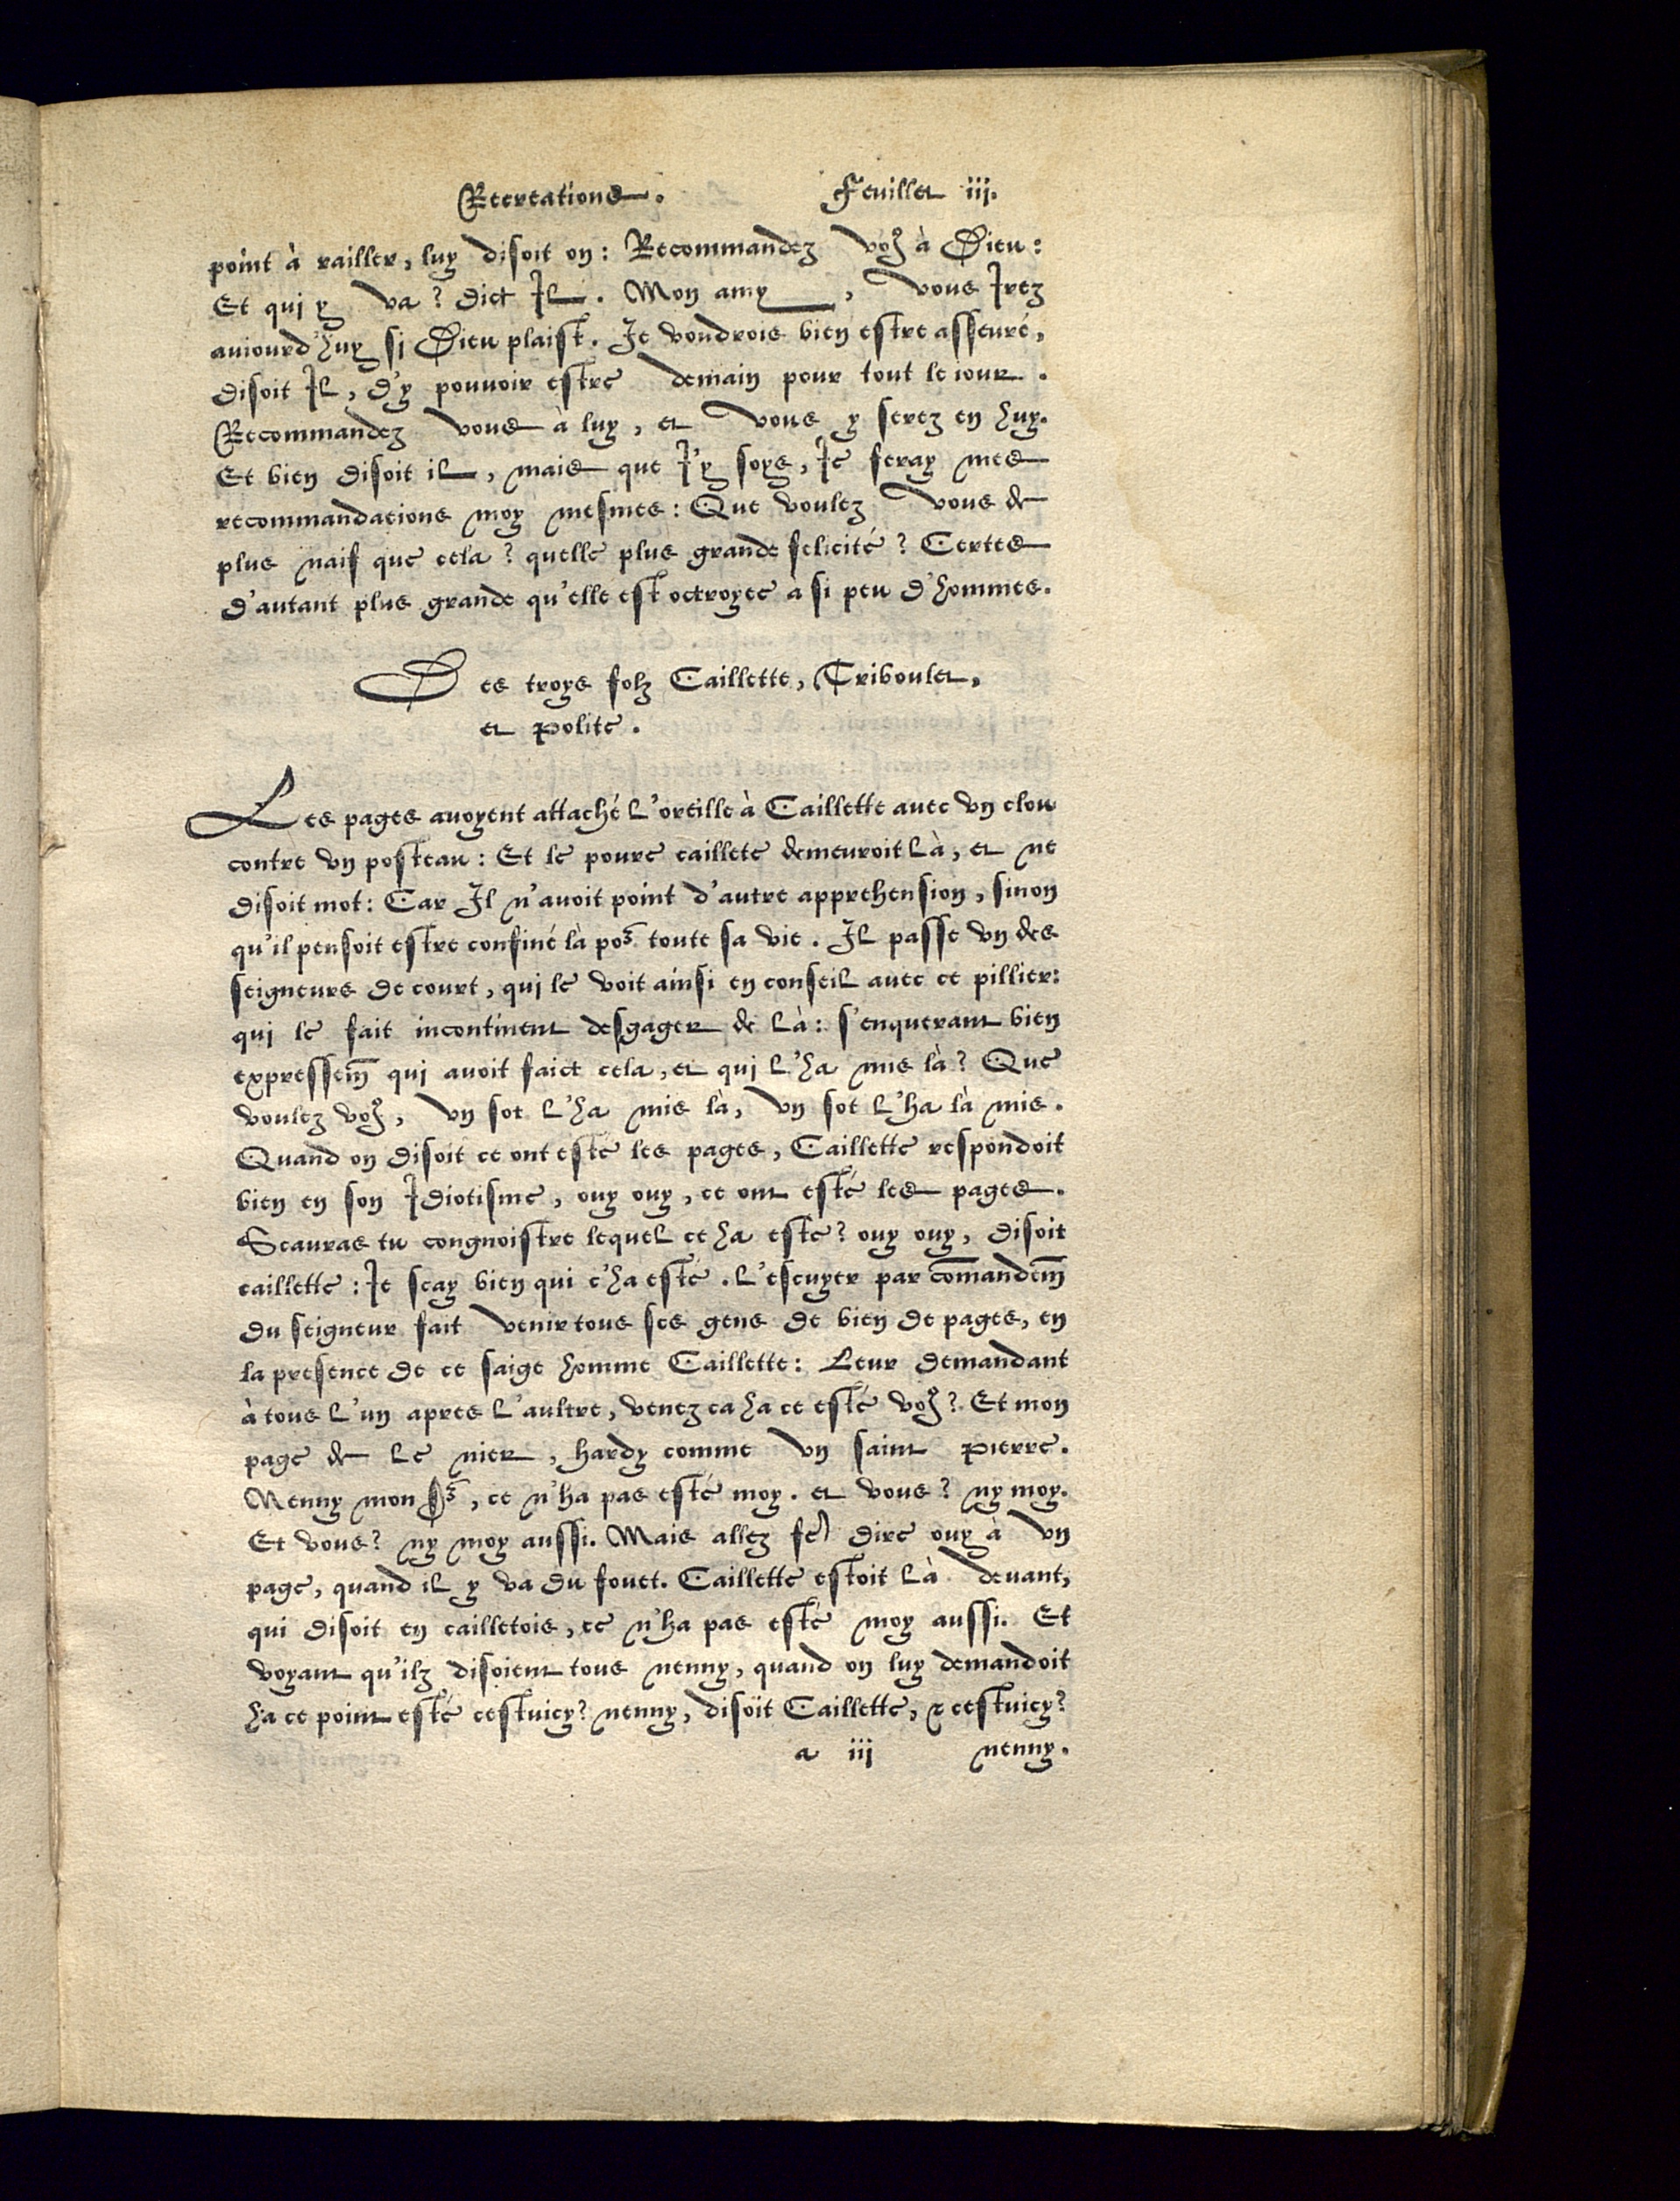 Recreations. Feuillet iij.
point à railler, luy disoit on: Recommandez vous à Dieu:
Et qui y va? dict Il. Mon amy, vous Irez
auiourd'huy si Dieu plaist. Je voudrois bien estre asseuré,
disoit Il, d'y pouuoir estre demain pour tout le iour.
Recommandez vous à luy, et vous y serez en huy.
Et bien disoit il, mais que I'y soys, Ie feray mes
recommandations moy mesmes: Que voulez vous de
plus naif que cela? quelle plus grande felicité? Certes
d'autant plus grande qu'elle est octroyee à si peu d'hommes.
Des troys folz Caillette, Triboulet,
et Polite.
Les pages auoyent attaché l'oreille à Caillette auec vn clou
contre vn posteau: Et le poure caillete demeuroit là, et ne
disoit mot: Car Il n'auoit point d'autre apprehension, sinon
qu'il pensoit estre confiné là por toute sa vie. Il passe vn des
seigneurs de court, qui le voit ainsi en conseil auec ce pillier:
qui le fait incontinent desgager de là: s'enquerant bien
expressem̄ qui auoit faict cela, et qui l'ha mis là? Que
voulez vous, vn sot l'ha mis là, vn sot l'ha là mis.
Quand on disoit ce ont esté les pages, Caillette respondoit
bien en son Idiotisme, ouy ouy, ce ont esté les pages.
Scauras tu congnoistre lequel ce ha esté? ouy ouy, disoit
caillette: Ie scay bien qui c'ha esté. L'escuyer par com̄andem̄
du seigneur fait venir tous ses gens de bien de pages, en
la presence de ce saige homme Caillette: Leur demandant
à tous l'un apres l'aultre, venez ca ha ce esté vous? Et mon
page de le nier, hardy comme vn saint Pierre.
Nenny mon Sr, ce n'ha pas esté moy. et vous? ny moy.
Et vous? ny moy aussi. Mais allez fe dire ouy à vn
page, quand il y va du fouet. Caillette estoit là deuant,
qui disoit en cailletois, ce n'ha pas esté moy aussi. Et
voyant qu'ilz disoient tous nenny, quand on luy demandoit
ha ce point esté cestuicy? nenny, disoit Caillette, & cestuicy?
a iij nenny.